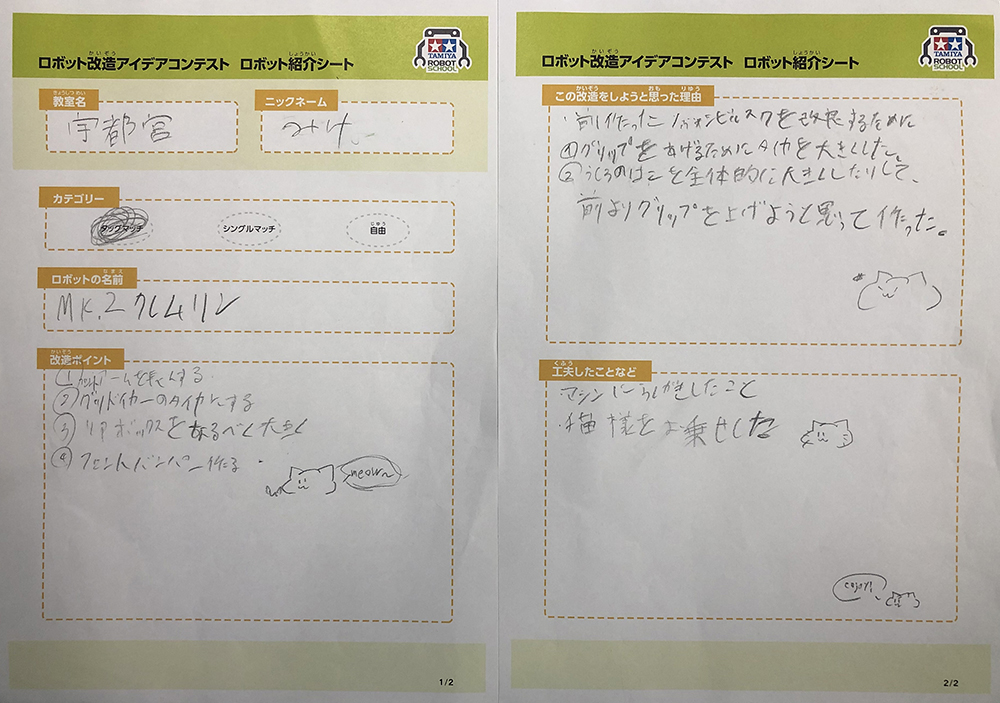 ロボット改造アイデアコンテスト ロボット紹介シート
かいぞう
しょうかい
TAMIYA
ROBOT
SCHOOL
きょうしつめい
教室名
宇都宮
ニックネーム
みけ
カテゴリー
タッグマッチ
シングルマッチ
じゆう
自由
なまえ
ロボットの名前
MK.2 クレムリン
かいぞう
改造ポイント
① アームを長くする
② グリッドイカーのタイヤにする
③ リアボックスをなるべく大きく
④ フロントバンパー作る
meow~
1/2
ロボット改造アイデアコンテスト ロボット紹介シート
かいぞう
しょうかい
TAMIYA
ROBOT
SCHOOL
かいぞう
おも
りゆう
この改造をしようと思った理由
前作った を改良するために
① グリップをあげるためにタイヤを大きくした。
② うしろのはこを全体的に大きくしたりして、
前よりグリップを上げようと思って作った。
くふう
工夫したことなど
マシンにらくがきしたこと
猫様をお乗せした
2/2